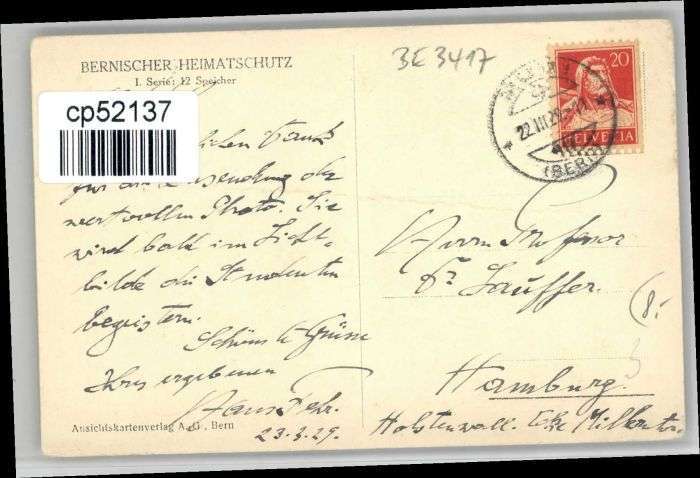 BERNISCHER HEIMATSCHUTZ
I. Serie: 12 Speicher
cp52137
BE 3417
20
HELVETIA
22.III.29
(BERN)
Dank
für die Zusendung der
wertvollen Photo. Sie
wird bald im Licht-
bilde die Studenten
begeistern.
Schönste Grüsse
Ihres ergebenen
Hans Fehr.
23.3.29.
Ansichtskartenverlag A.G., Bern
Herrn Professor
Dr Lauffer.
Hamburg.
Holstenwall. Ecke Millerntor.
(8.-